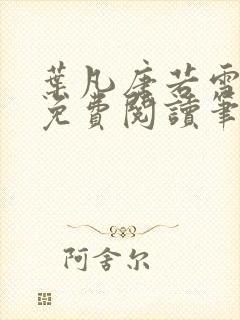 葉凡唐若雪
免費閱讀筆
阿舍尔